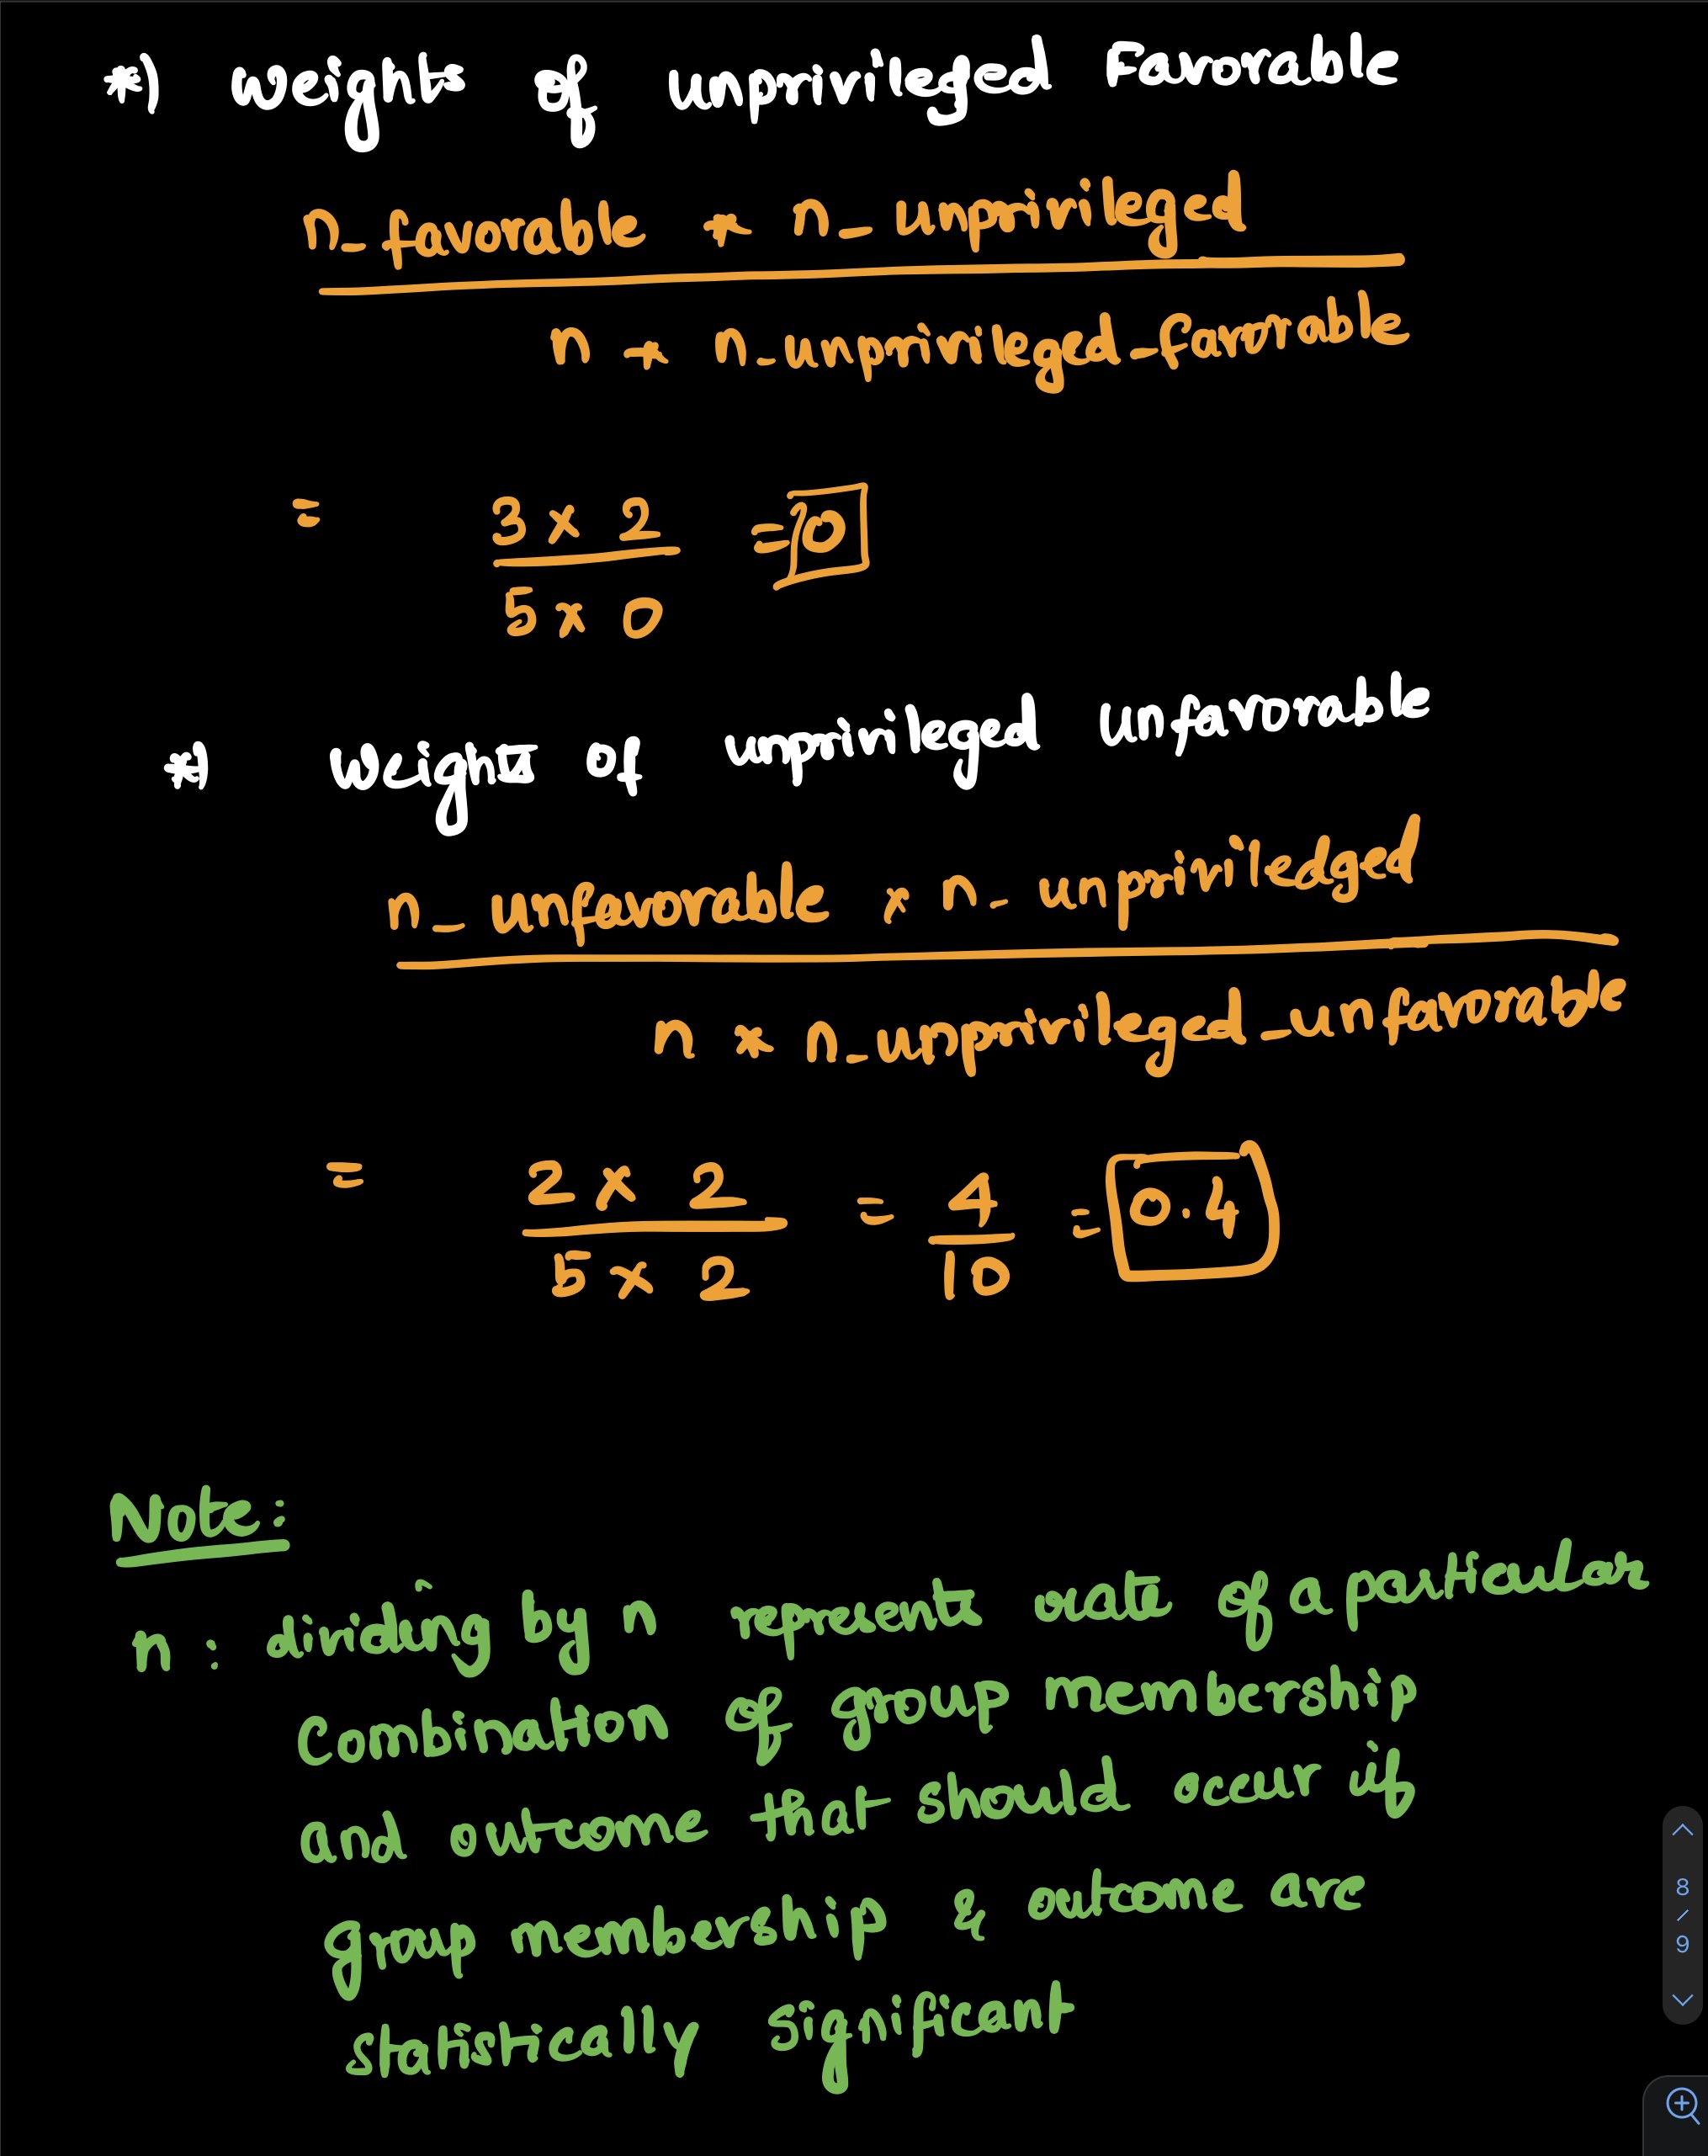 *) Weights of unprivileged Favorable
n_favorable * n_unprivileged
n * n_unprivileged_favorable
= 3 x 2 = 0
5 x 0
*) Weights of unprivileged unfavorable
n_unfavorable x n_unpriviledged
n * n_unprivileged_unfavorable
= 2 x 2 = 4 = 0.4
5 x 2 10
Note:
n : dividing by n represents rate of a particular
Combination of group membership
and outcome that should occur if
group membership & outcome are
statistically significant
8
/
9